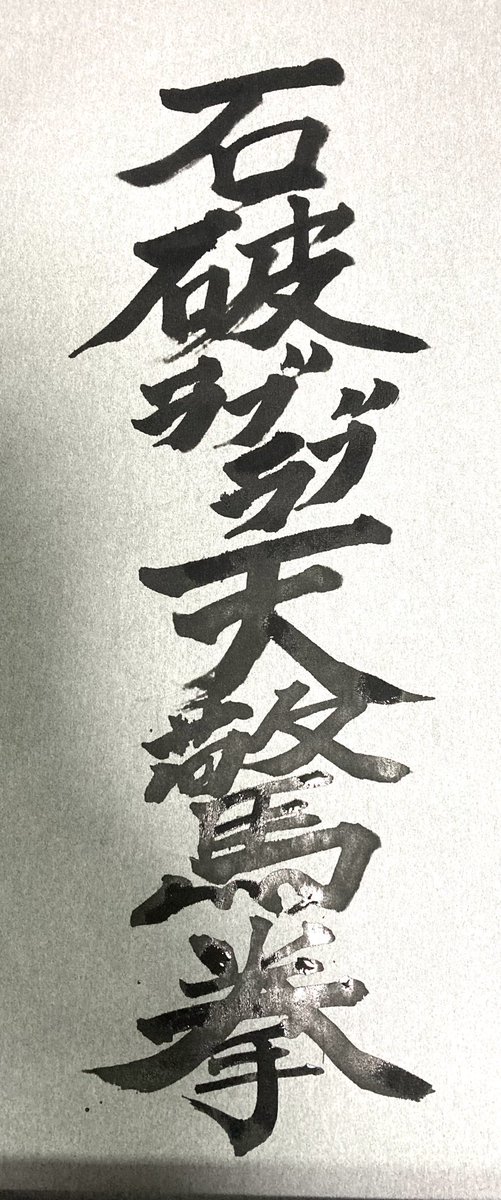 石破ラブラブ天驚拳